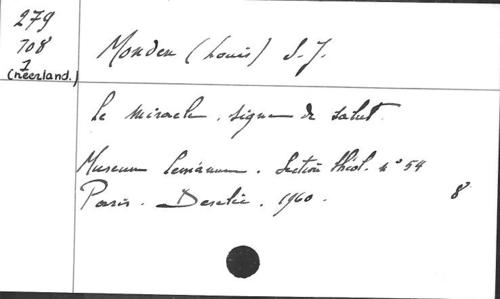 279
708
1
(néerland.)
Monden (Louis) S.J.
Le miracle, signe de salut.
Museum Lessianum. Section théol. n° 54
Paris. Desclée. 1960. 8